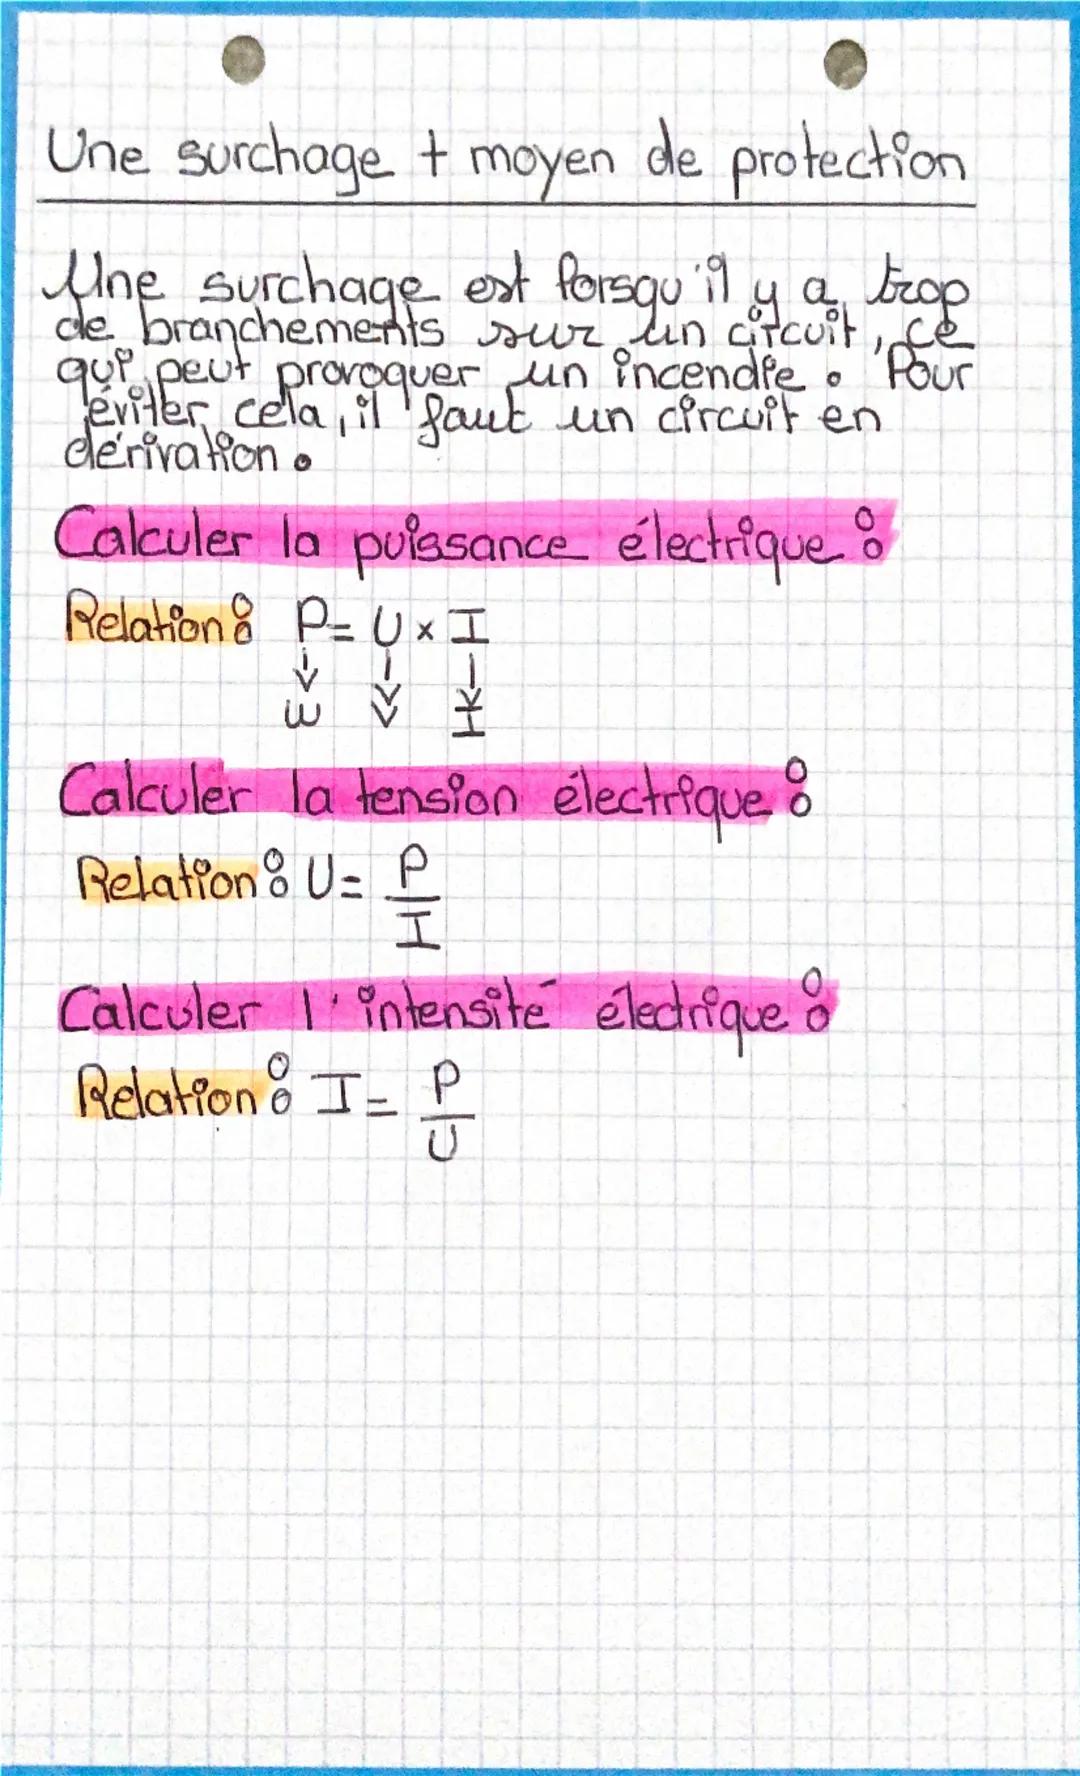 Une surchage + moyen de protection
Une surchage est lorsqu'il y a trop
de branchements sur un circuit, ce
qui peut provoquer un incendie. Pour
éviter cela, il faut un circuit en
dérivation.
Calculer la puissance électrique :
Relation : P = U × I
↓ ↓ ↓
W V I
Calculer la tension électrique :
Relation : U = P
I
Calculer l'intensité électrique :
Relation : I = P
U